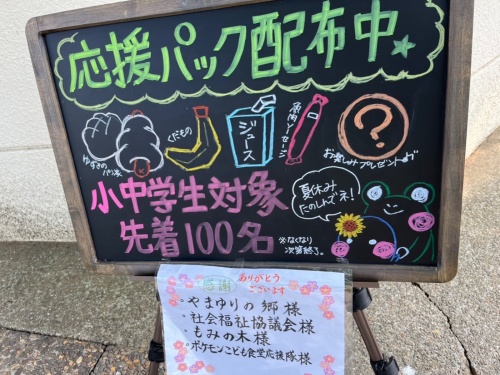 応援パック配布中
ゆずきのパン家
くだもの
ジュース
魚肉ソーセージ
?
お楽しみプレゼント
小中学生対象
先着100名
※なくなり
次第終了。
夏休み
たのしんでネ!
感謝
ありがとう
ございます
・やまゆりの郷様
・社会福祉協議会様
・もみの木様
・ポケモンこども食堂応援隊様